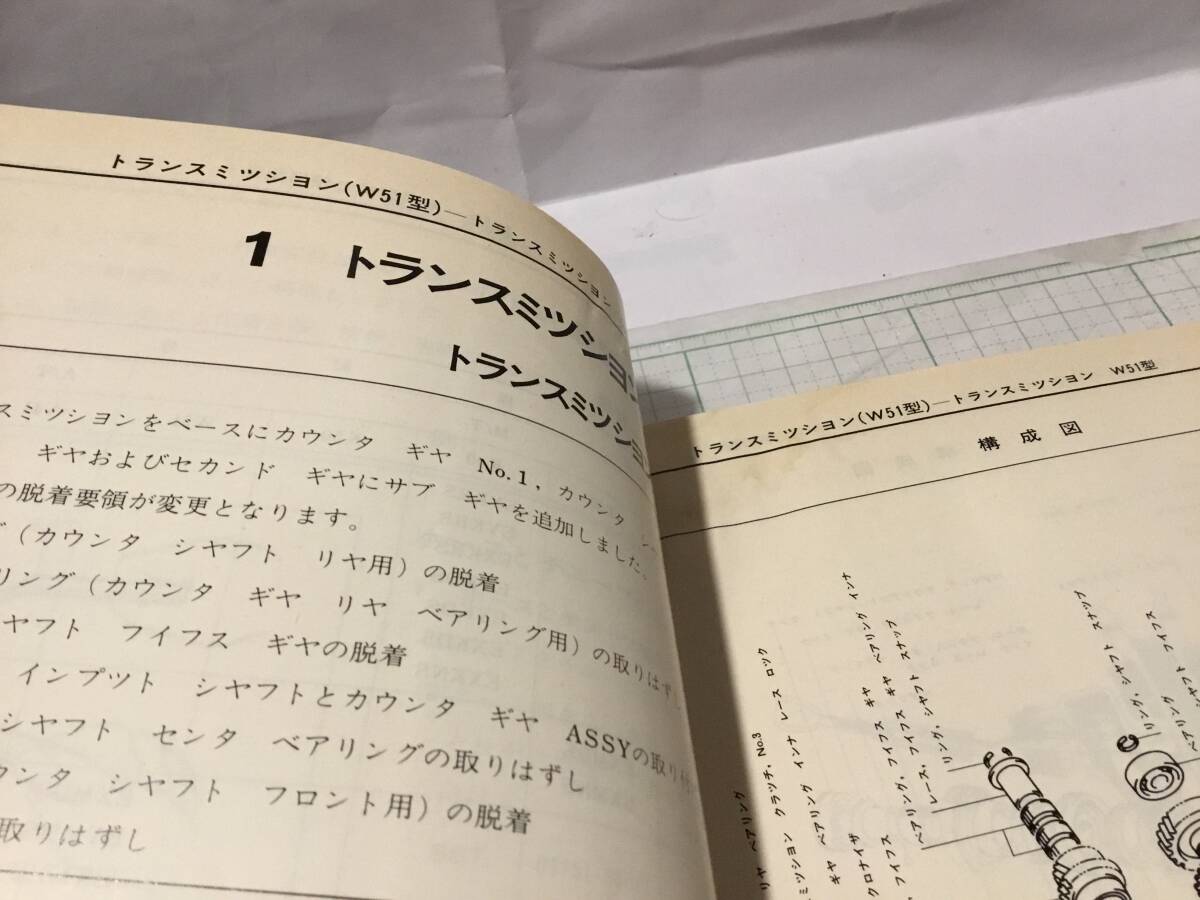 トランスミツシヨン(W51型)―トランスミツシヨン
1 トランスミツシヨン
トランスミツシヨ
スミツシヨンをベースにカウンタ ギヤ No.1，カウンタ
ギヤおよびセカンド ギヤにサブ ギヤを追加しました。
の脱着要領が変更となります。
(カウンタ シヤフト リヤ用)の脱着
リング(カウンタ ギヤ リヤ ベアリング用)の取りはずし
ヤフト フイフス ギヤの脱着
インプツト シヤフトとカウンタ ギヤ ASSYの取り
シヤフト センタ ベアリングの取りはずし
ウンタ シヤフト フロント用)の脱着
取りはずし
トランスミツシヨン(W51型)―トランスミツシヨン W51型
構成図
リヤ ベアリング
ミツシヨン クラツチ，No.3
ギヤ ベアリング インナ レース ロツク
クロナイザ
フイフス
ベアリング，フイフス ギヤ
レース，フイフス ギヤ ベアリング インナ
リング，シヤフト スナツプ
リング，シヤフト スナツプ
ベアリング
シヤフト フイフス